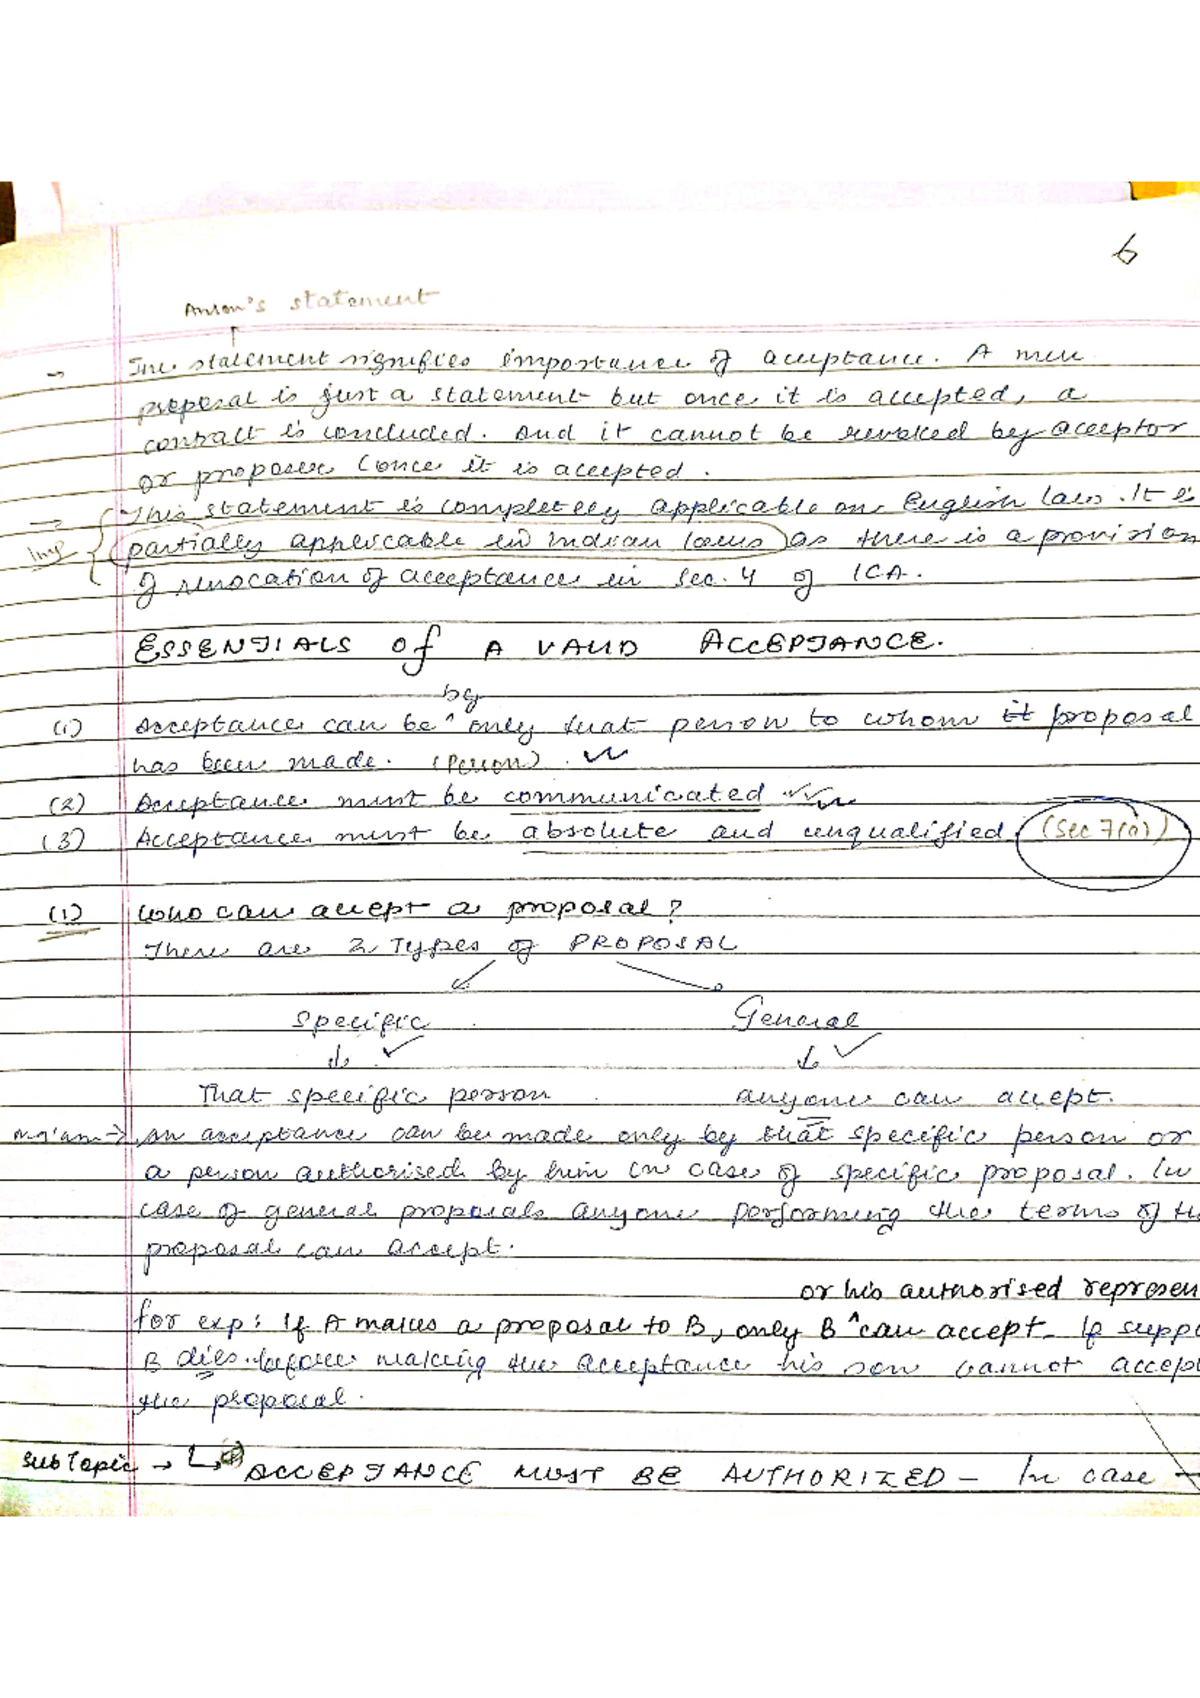 6
Anson's statement
→ The statement signifies importance of acceptance. A mere
proposal is just a statement but once it is accepted, a
contract is concluded. And it cannot be revoked by acceptor
or proposer (once it is accepted.
→ This statement is completely applicable on English law. It is
Imp partially applicable in Indian laws as there is a provision
of revocation of acceptance in sec. 4 of ICA.
ESSENTIALS of A VALID ACCEPTANCE.
by
(1) Acceptance can be ^ only that person to whom it proposal
has been made. (Person)
(2) Acceptance must be communicated
(3) Acceptance must be absolute and unqualified. (Sec 7(a))
(1) Who can accept a proposal?
There are 2 Types of PROPOSAL
Specific General
That specific person anyone can accept.
Ma'am → An acceptance can be made only by that specific person or
a person authorised by him in case of specific proposal. In
case of general proposals anyone performing the terms of th
proposal can accept.
or his authorised represen
for exp: If A makes a proposal to B, only B ^ can accept. If suppo
B dies before making the acceptance his son cannot accept
the proposal.
Sub Topic → ACCEPTANCE MUST BE AUTHORIZED – In case